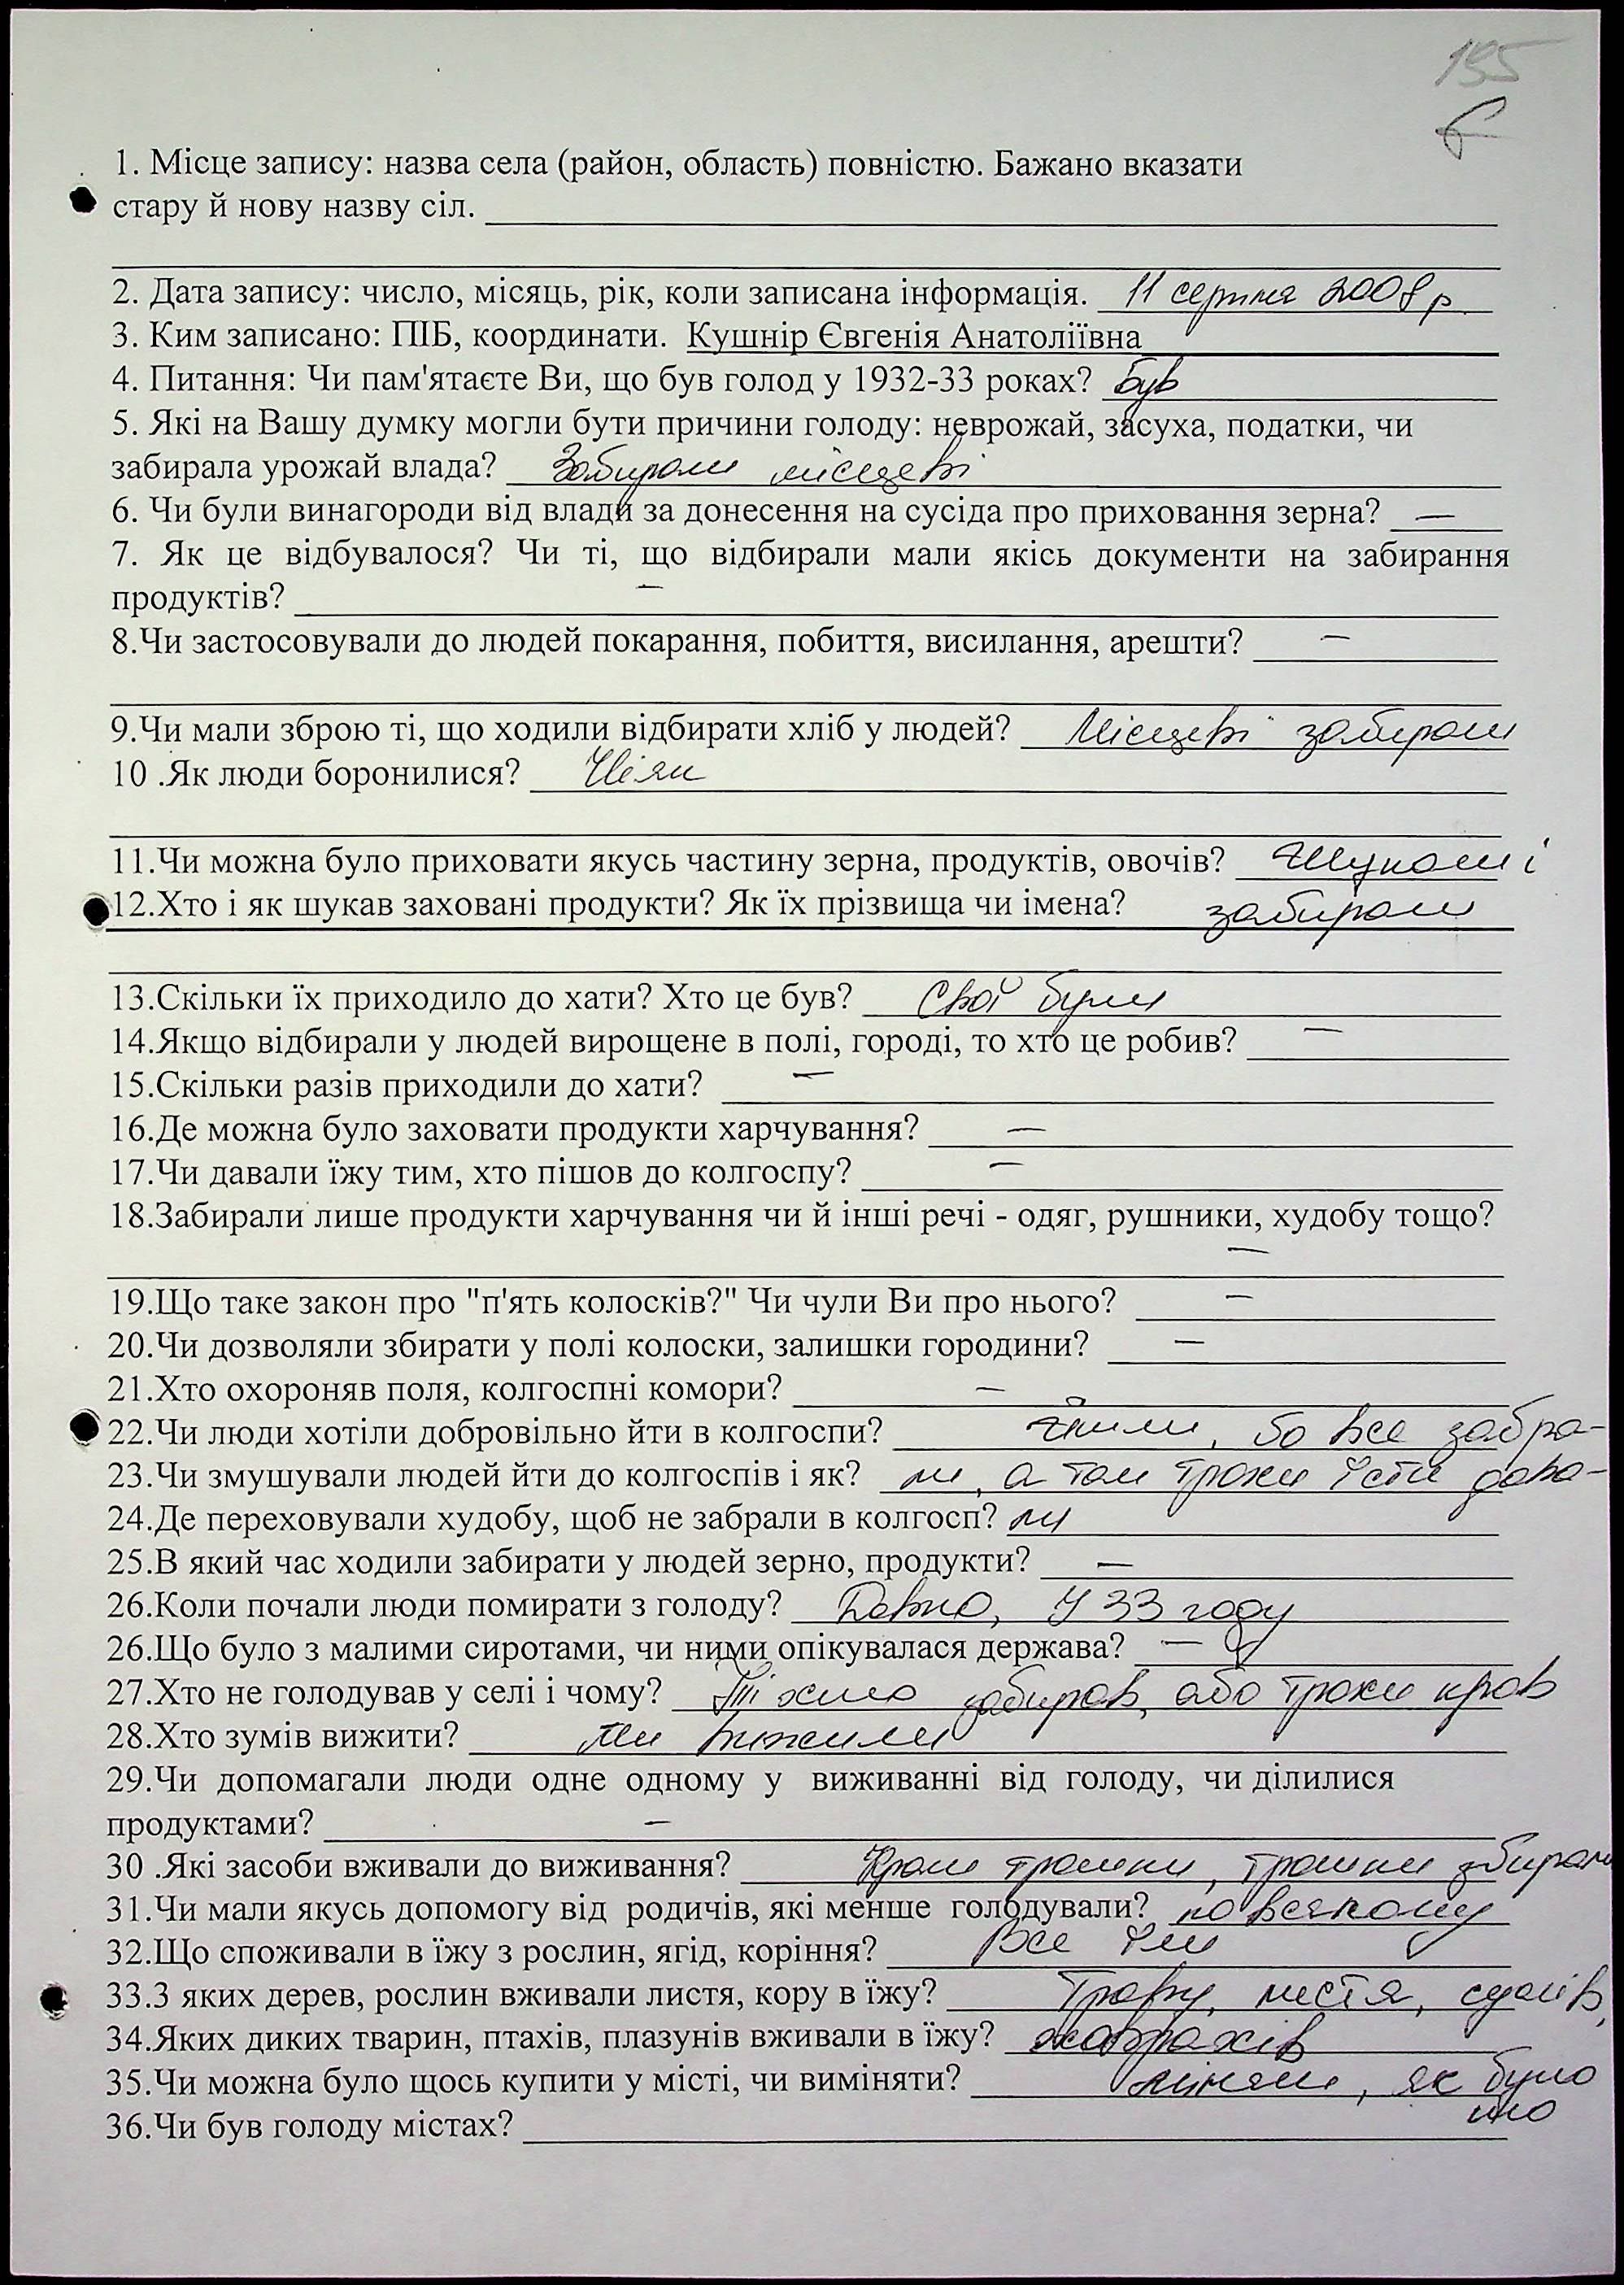 195
1. Місце запису: назва села (район, область) повністю. Бажано вказати
стару й нову назву сіл.
2. Дата запису: число, місяць, рік, коли записана інформація. 11 серпня 2008 р.
3. Ким записано: ПІБ, координати. Кушнір Євгенія Анатоліївна
4. Питання: Чи пам'ятаєте Ви, що був голод у 1932-33 роках? був
5. Які на Вашу думку могли бути причини голоду: неврожай, засуха, податки, чи
забирала урожай влада? Забирали місцеві
6. Чи були винагороди від влади за донесення на сусіда про приховання зерна? —
7. Як це відбувалося? Чи ті, що відбирали мали якісь документи на забирання
продуктів? —
8.Чи застосовували до людей покарання, побиття, висилання, арешти? —
9.Чи мали зброю ті, що ходили відбирати хліб у людей? Місцеві забирали
10 .Як люди боронилися? Ніяк
11.Чи можна було приховати якусь частину зерна, продуктів, овочів? Шукали і
12.Хто і як шукав заховані продукти? Як їх прізвища чи імена? забирали
13.Скільки їх приходило до хати? Хто це був? Свої були
14.Якщо відбирали у людей вирощене в полі, городі, то хто це робив? —
15.Скільки разів приходили до хати? —
16.Де можна було заховати продукти харчування? —
17.Чи давали їжу тим, хто пішов до колгоспу? —
18.Забирали лише продукти харчування чи й інші речі - одяг, рушники, худобу тощо?
—
19.Що таке закон про "п'ять колосків?" Чи чули Ви про нього? —
20.Чи дозволяли збирати у полі колоски, залишки городини? —
21.Хто охороняв поля, колгоспні комори? —
22.Чи люди хотіли добровільно йти в колгоспи? йшли, бо все забра-
23.Чи змушували людей йти до колгоспів і як? ли, а там трохи їсти дава-
24.Де переховували худобу, щоб не забрали в колгосп? ли
25.В який час ходили забирати у людей зерно, продукти? —
26.Коли почали люди помирати з голоду? Давно, у 33 году
26.Що було з малими сиротами, чи ними опікувалася держава? —
27.Хто не голодував у селі і чому? Ті хто забирав, або трохи крав
28.Хто зумів вижити? Ми вижили
29.Чи допомагали люди одне одному у виживанні від голоду, чи ділилися
продуктами? —
30 .Які засоби вживали до виживання? Крали трошки, трошки збирали
31.Чи мали якусь допомогу від родичів, які менше голодували? по всякому
32.Що споживали в їжу з рослин, ягід, коріння? Все їли
33.З яких дерев, рослин вживали листя, кору в їжу? Траву, листя,
34.Яких диких тварин, птахів, плазунів вживали в їжу? ховрахів
35.Чи можна було щось купити у місті, чи виміняти? міняли, як було
що
36.Чи був голоду містах?